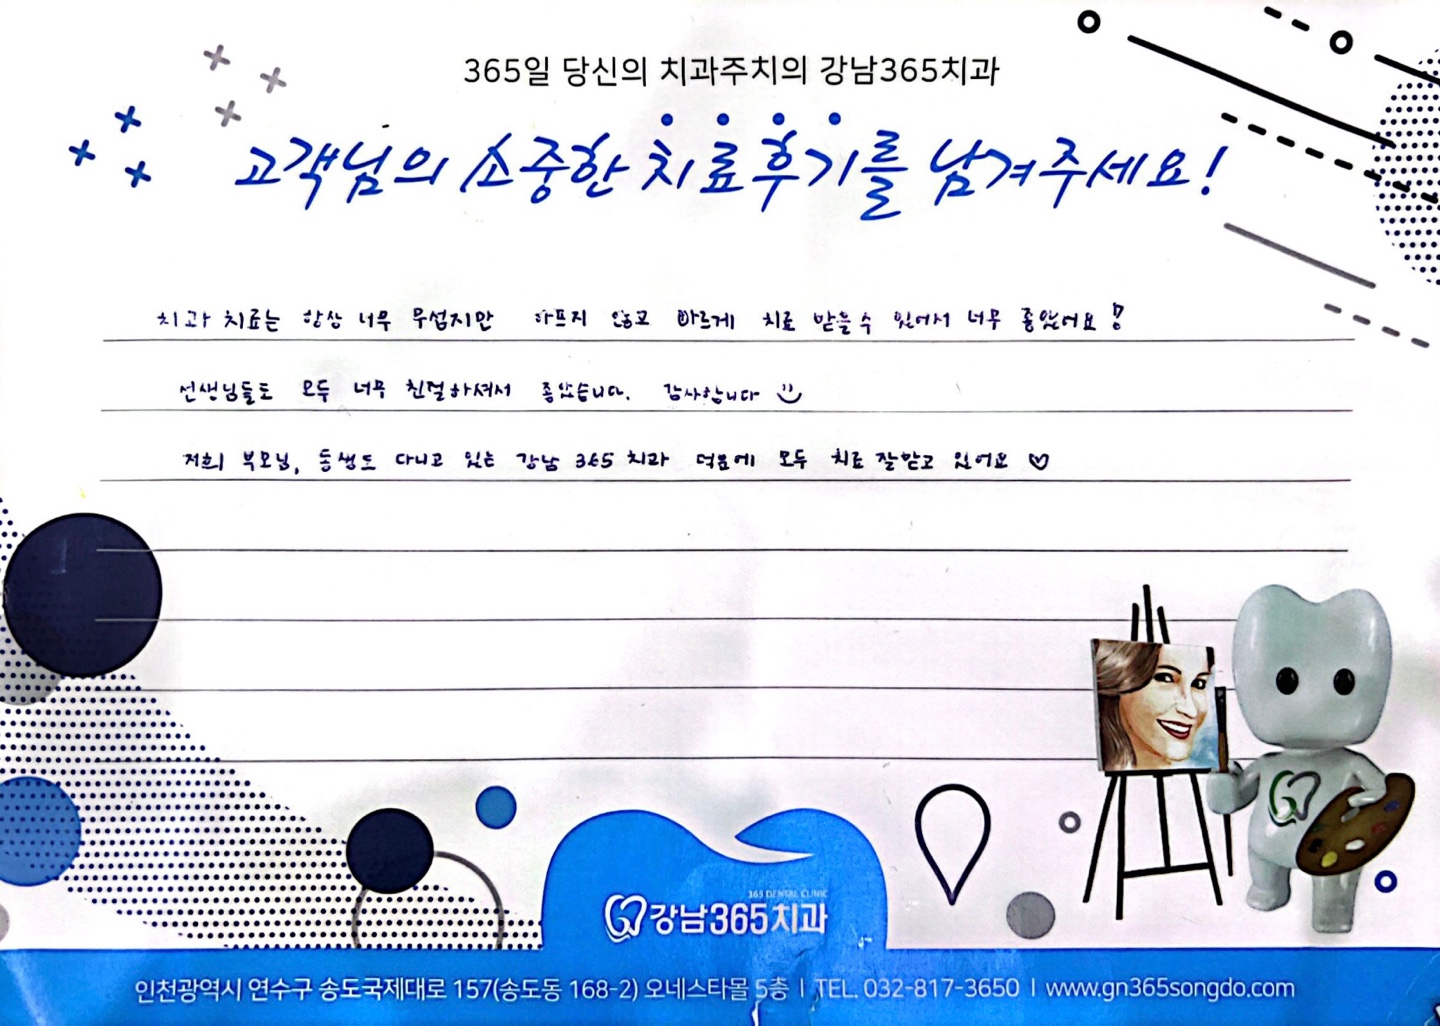 365일 당신의 치과주치의 강남365치과
고객님의 소중한 치료후기를 남겨주세요!
치과 치료는 항상 너무 무섭지만 아프지 않고 빠르게 치료 받을 수 있어서 너무 좋았어요!
선생님들도 모두 너무 친절하셔서 좋았습니다. 감사합니다
저희 부모님, 동생도 다니고 있는 강남 365 치과 덕분에 모두 치료 잘받고 있어요 ♡
365 DENTAL CLINIC
강남365치과
인천광역시 연수구 송도국제대로 157(송도동 168-2) 오네스타몰 5층 | TEL. 032-817-3650 | www.gn365songdo.com